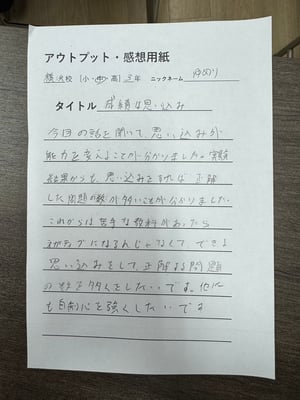 アウトプット・感想用紙
横浜校 [小・中・高] 3年 ニックネーム ゆのり
タイトル 成績は思い込み
今回の話を聞いて、思い込みが
能力を変えることが分かりました。実験
結果からも、思い込みをすれば 正解
した問題の数が多いことが分かりました。
これからは苦手な教科があったら
ネガティブになるんじゃなくて、できる
思い込みをして、正解する問題
の数を多くをしたいです。他に
も自制心を強くしたいです